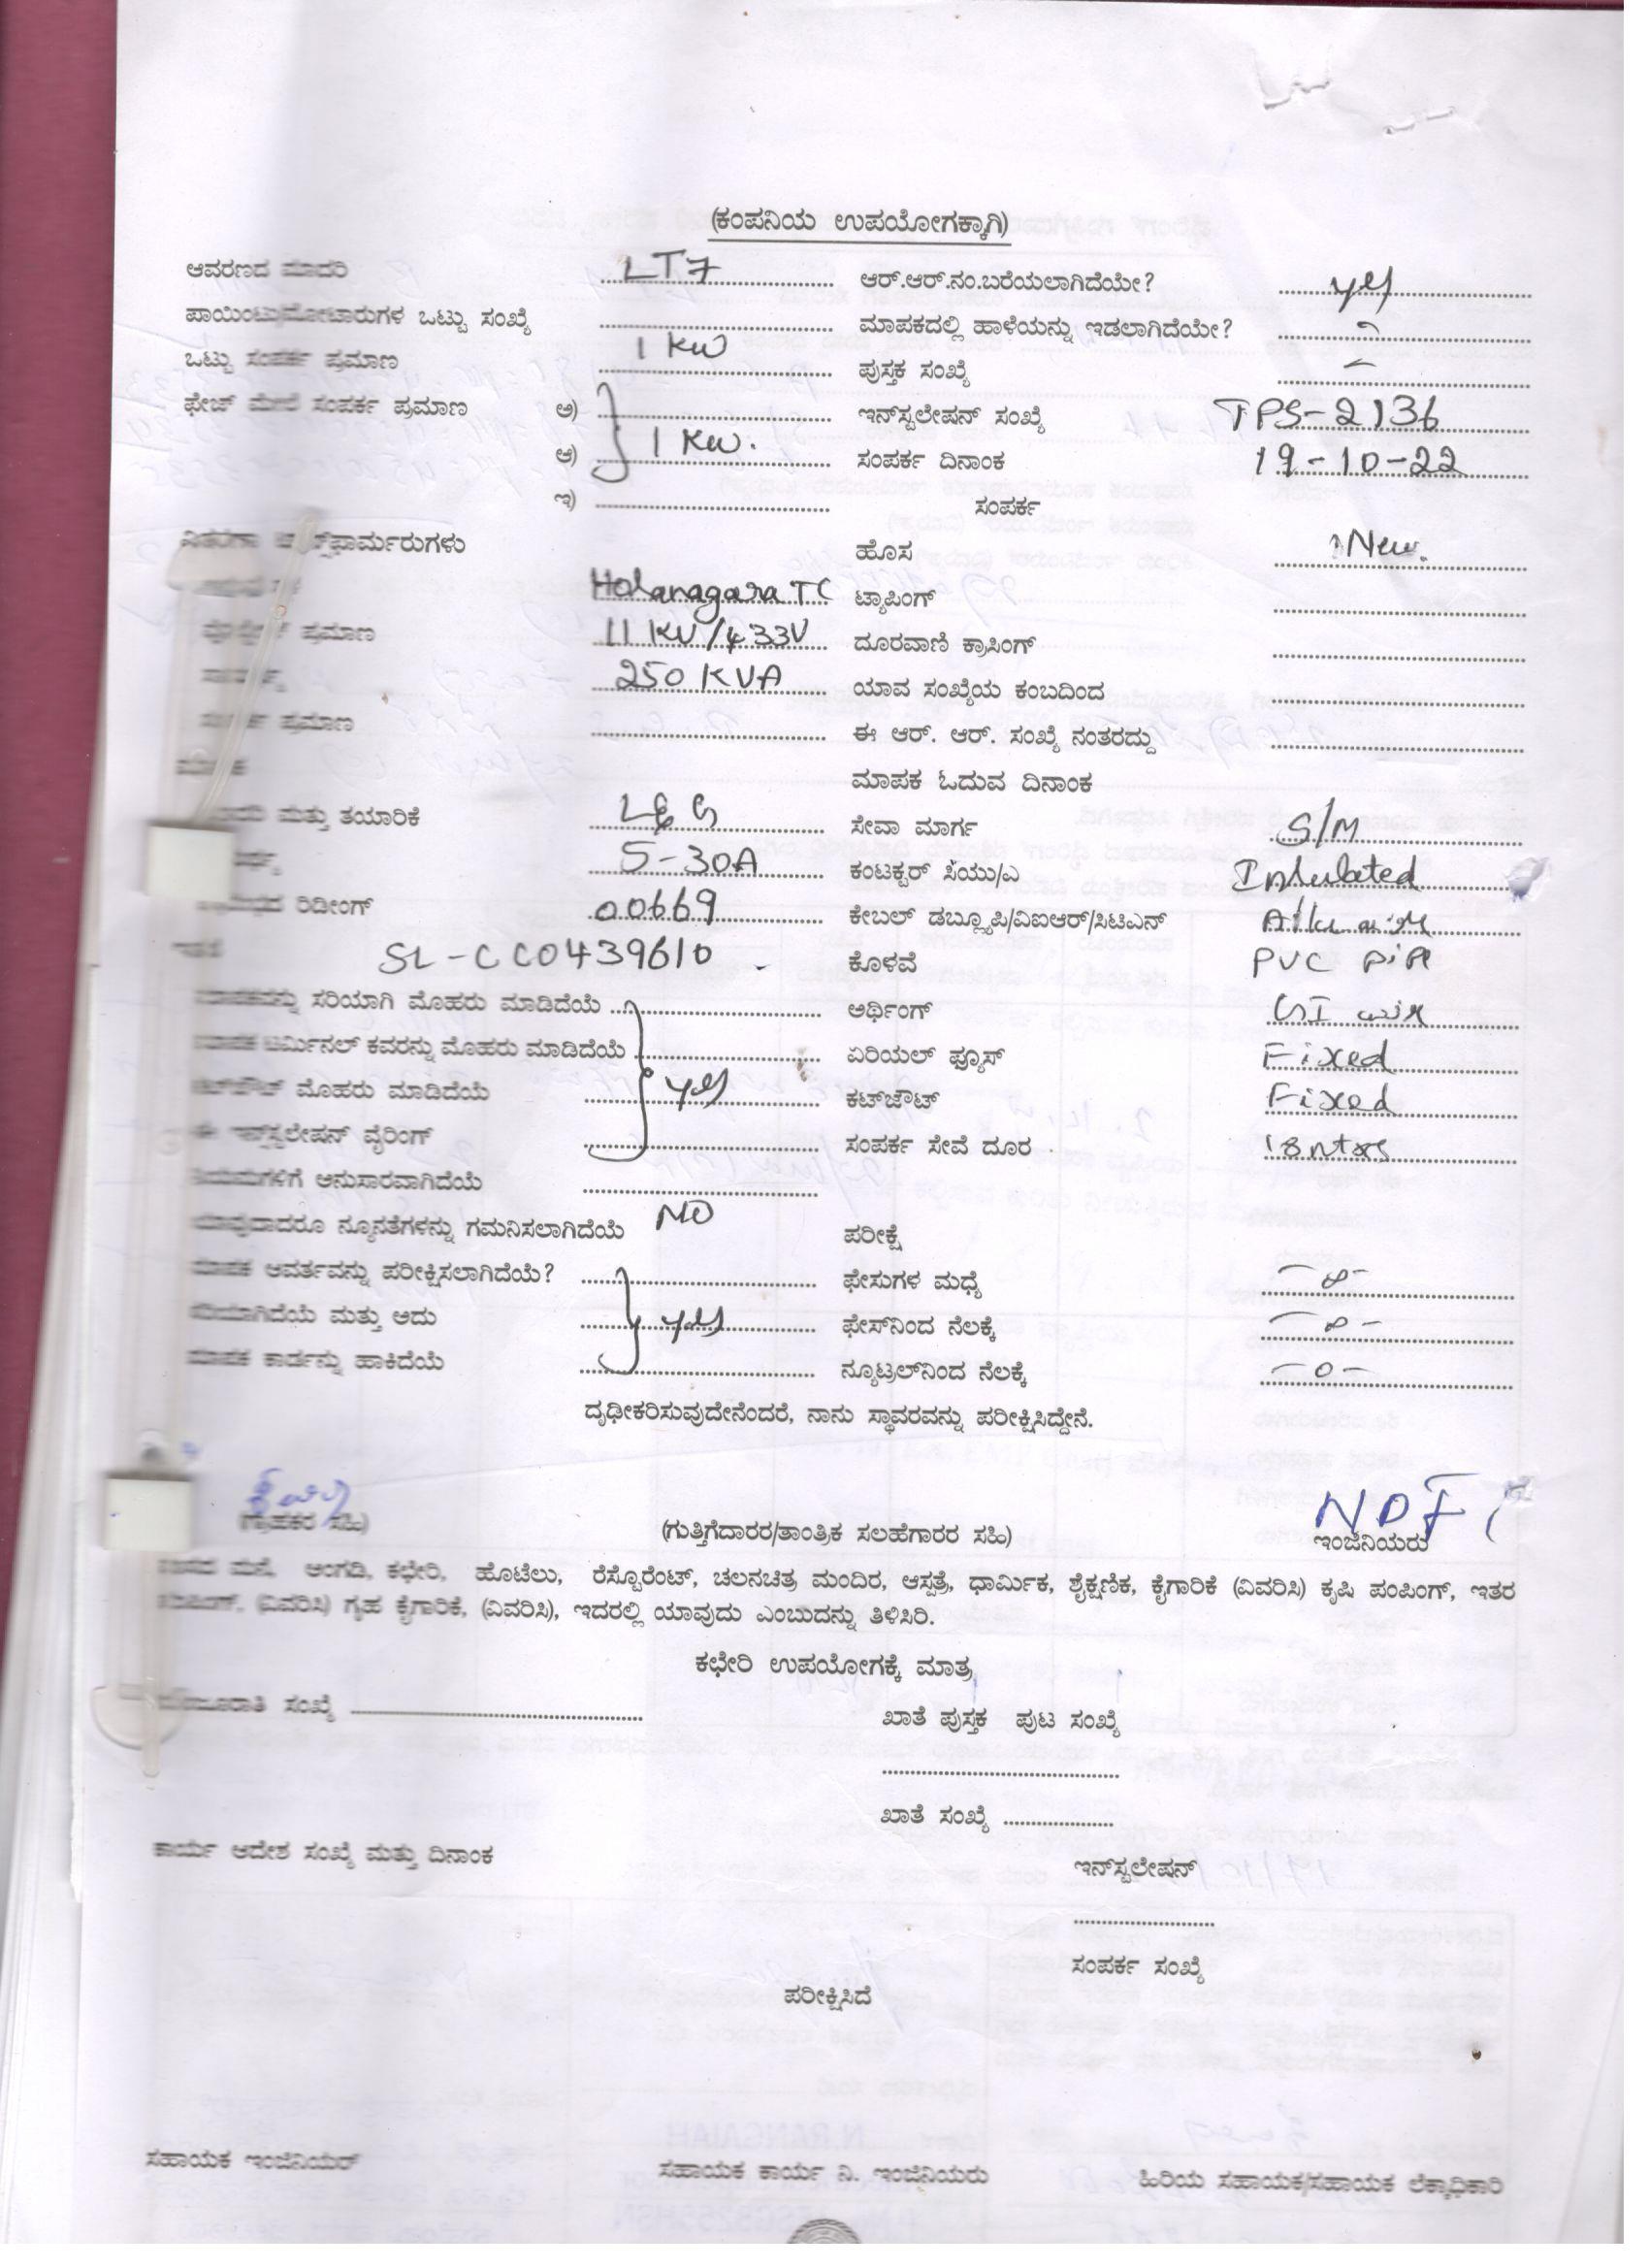 (ಕಂಪನಿಯ ಉಪಯೋಗಕ್ಕಾಗಿ)
ಆವರಣದ ಮಾದರಿ LT7 ಆರ್.ಆರ್.ನಂ.ಬರೆಯಲಾಗಿದೆಯೇ? yes
ಪಾಯಿಂಟು/ಮೋಟಾರುಗಳ ಒಟ್ಟು ಸಂಖ್ಯೆ ಮಾಪಕದಲ್ಲಿ ಹಾಳೆಯನ್ನು ಇಡಲಾಗಿದೆಯೇ?
ಒಟ್ಟು ಸಂಪರ್ಕ ಪ್ರಮಾಣ 1 KW ಪುಸ್ತಕ ಸಂಖ್ಯೆ –
ಫೇಜ್ ಮೇಲೆ ಸಂಪರ್ಕ ಪ್ರಮಾಣ ಅ) ಇನ್‌ಸ್ಟಲೇಷನ್ ಸಂಖ್ಯೆ TPS-2136
ಆ) 1 KW. ಸಂಪರ್ಕ ದಿನಾಂಕ 19-10-22
ಇ) ಸಂಪರ್ಕ
ಹೊಸ New.
Holanagara TC ಟ್ಯಾಪಿಂಗ್
ಪ್ರಮಾಣ 11 KV/433V ದೂರವಾಣಿ ಕ್ರಾಸಿಂಗ್
250 KVA ಯಾವ ಸಂಖ್ಯೆಯ ಕಂಬದಿಂದ
ಪ್ರಮಾಣ ಈ ಆರ್. ಆರ್. ಸಂಖ್ಯೆ ನಂತರದ್ದು
ಮಾಪಕ ಓದುವ ದಿನಾಂಕ
ಮತ್ತು ತಯಾರಿಕೆ L&G ಸೇವಾ ಮಾರ್ಗ S/M
5-30A ಕಂಟಕ್ಟರ್ ಸಿಯು/ಎ Insulated
ರಿಡೀಂಗ್ 00669 ಕೇಬಲ್ ಡಬ್ಲ್ಯೂಪಿ/ವಿಐಆರ್/ಸಿಟಿಎನ್
SL-CC0439610 ಕೊಳವೆ PVC pipe
ಸರಿಯಾಗಿ ಮೊಹರು ಮಾಡಿದೆಯೆ ಅರ್ಥಿಂಗ್ GI wire
ಟರ್ಮಿನಲ್ ಕವರನ್ನು ಮೊಹರು ಮಾಡಿದೆಯೆ ಏರಿಯಲ್ ಫ್ಯೂಸ್ Fixed
ಮೊಹರು ಮಾಡಿದೆಯೆ yes ಕಟ್‌ಔಟ್ Fixed
ಈ ಇನ್‌ಸ್ಟಲೇಷನ್ ವೈರಿಂಗ್ ಸಂಪರ್ಕ ಸೇವೆ ದೂರ 18 mtrs
ನಿಯಮಗಳಿಗೆ ಅನುಸಾರವಾಗಿದೆಯೆ
ಯಾವುದಾದರೂ ನ್ಯೂನತೆಗಳನ್ನು ಗಮನಿಸಲಾಗಿದೆಯೆ NO ಪರೀಕ್ಷೆ
ಮಾಪಕ ಆವರ್ತವನ್ನು ಪರೀಕ್ಷಿಸಲಾಗಿದೆಯೆ? ಫೇಸುಗಳ ಮಧ್ಯೆ
ಸರಿಯಾಗಿದೆಯೆ ಮತ್ತು ಅದು yes ಫೇಸ್‌ನಿಂದ ನೆಲಕ್ಕೆ
ಮಾಪಕ ಕಾರ್ಡನ್ನು ಹಾಕಿದೆಯೆ ನ್ಯೂಟ್ರಲ್‌ನಿಂದ ನೆಲಕ್ಕೆ –0–
ದೃಢೀಕರಿಸುವುದೇನೆಂದರೆ, ನಾನು ಸ್ಥಾವರವನ್ನು ಪರೀಕ್ಷಿಸಿದ್ದೇನೆ.
(ಗ್ರಾಹಕರ ಸಹಿ) (ಗುತ್ತಿಗೆದಾರರ/ತಾಂತ್ರಿಕ ಸಲಹೆಗಾರರ ಸಹಿ) ಇಂಜಿನಿಯರು
ಮನೆ, ಅಂಗಡಿ, ಕಛೇರಿ, ಹೊಟೆಲು, ರೆಸ್ಟೊರೆಂಟ್, ಚಲನಚಿತ್ರ ಮಂದಿರ, ಆಸ್ಪತ್ರೆ, ಧಾರ್ಮಿಕ, ಶೈಕ್ಷಣಿಕ, ಕೈಗಾರಿಕೆ (ವಿವರಿಸಿ) ಕೃಷಿ ಪಂಪಿಂಗ್, ಇತರ
ಪಂಪಿಂಗ್, (ವಿವರಿಸಿ) ಗೃಹ ಕೈಗಾರಿಕೆ, (ವಿವರಿಸಿ), ಇದರಲ್ಲಿ ಯಾವುದು ಎಂಬುದನ್ನು ತಿಳಿಸಿರಿ.
ಕಛೇರಿ ಉಪಯೋಗಕ್ಕೆ ಮಾತ್ರ
ಮಂಜೂರಾತಿ ಸಂಖ್ಯೆ ಖಾತೆ ಪುಸ್ತಕ ಪುಟ ಸಂಖ್ಯೆ
ಖಾತೆ ಸಂಖ್ಯೆ
ಕಾರ್ಯ ಆದೇಶ ಸಂಖ್ಯೆ ಮತ್ತು ದಿನಾಂಕ ಇನ್‌ಸ್ಟಲೇಷನ್
ಸಂಪರ್ಕ ಸಂಖ್ಯೆ
ಪರೀಕ್ಷಿಸಿದೆ
ಸಹಾಯಕ ಇಂಜಿನಿಯರ್ ಸಹಾಯಕ ಕಾರ್ಯ ನಿ. ಇಂಜಿನಿಯರು ಹಿರಿಯ ಸಹಾಯಕ/ಸಹಾಯಕ ಲೆಕ್ಕಾಧಿಕಾರಿ